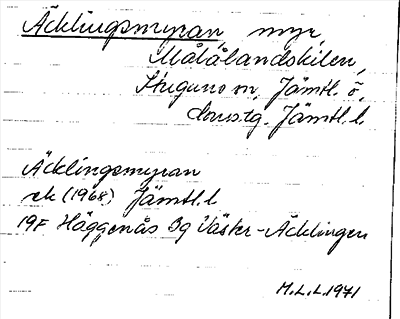 Äcklingsmyran, myr,
Målålandskilen,
Stuguns sn. Jämtl. ö.
domstg. Jämtl. l.
Äcklingsmyran
ek (1968) Jämtl. l
19F Häggenås 3g Väster-Äcklingen
M.L.L. 1971